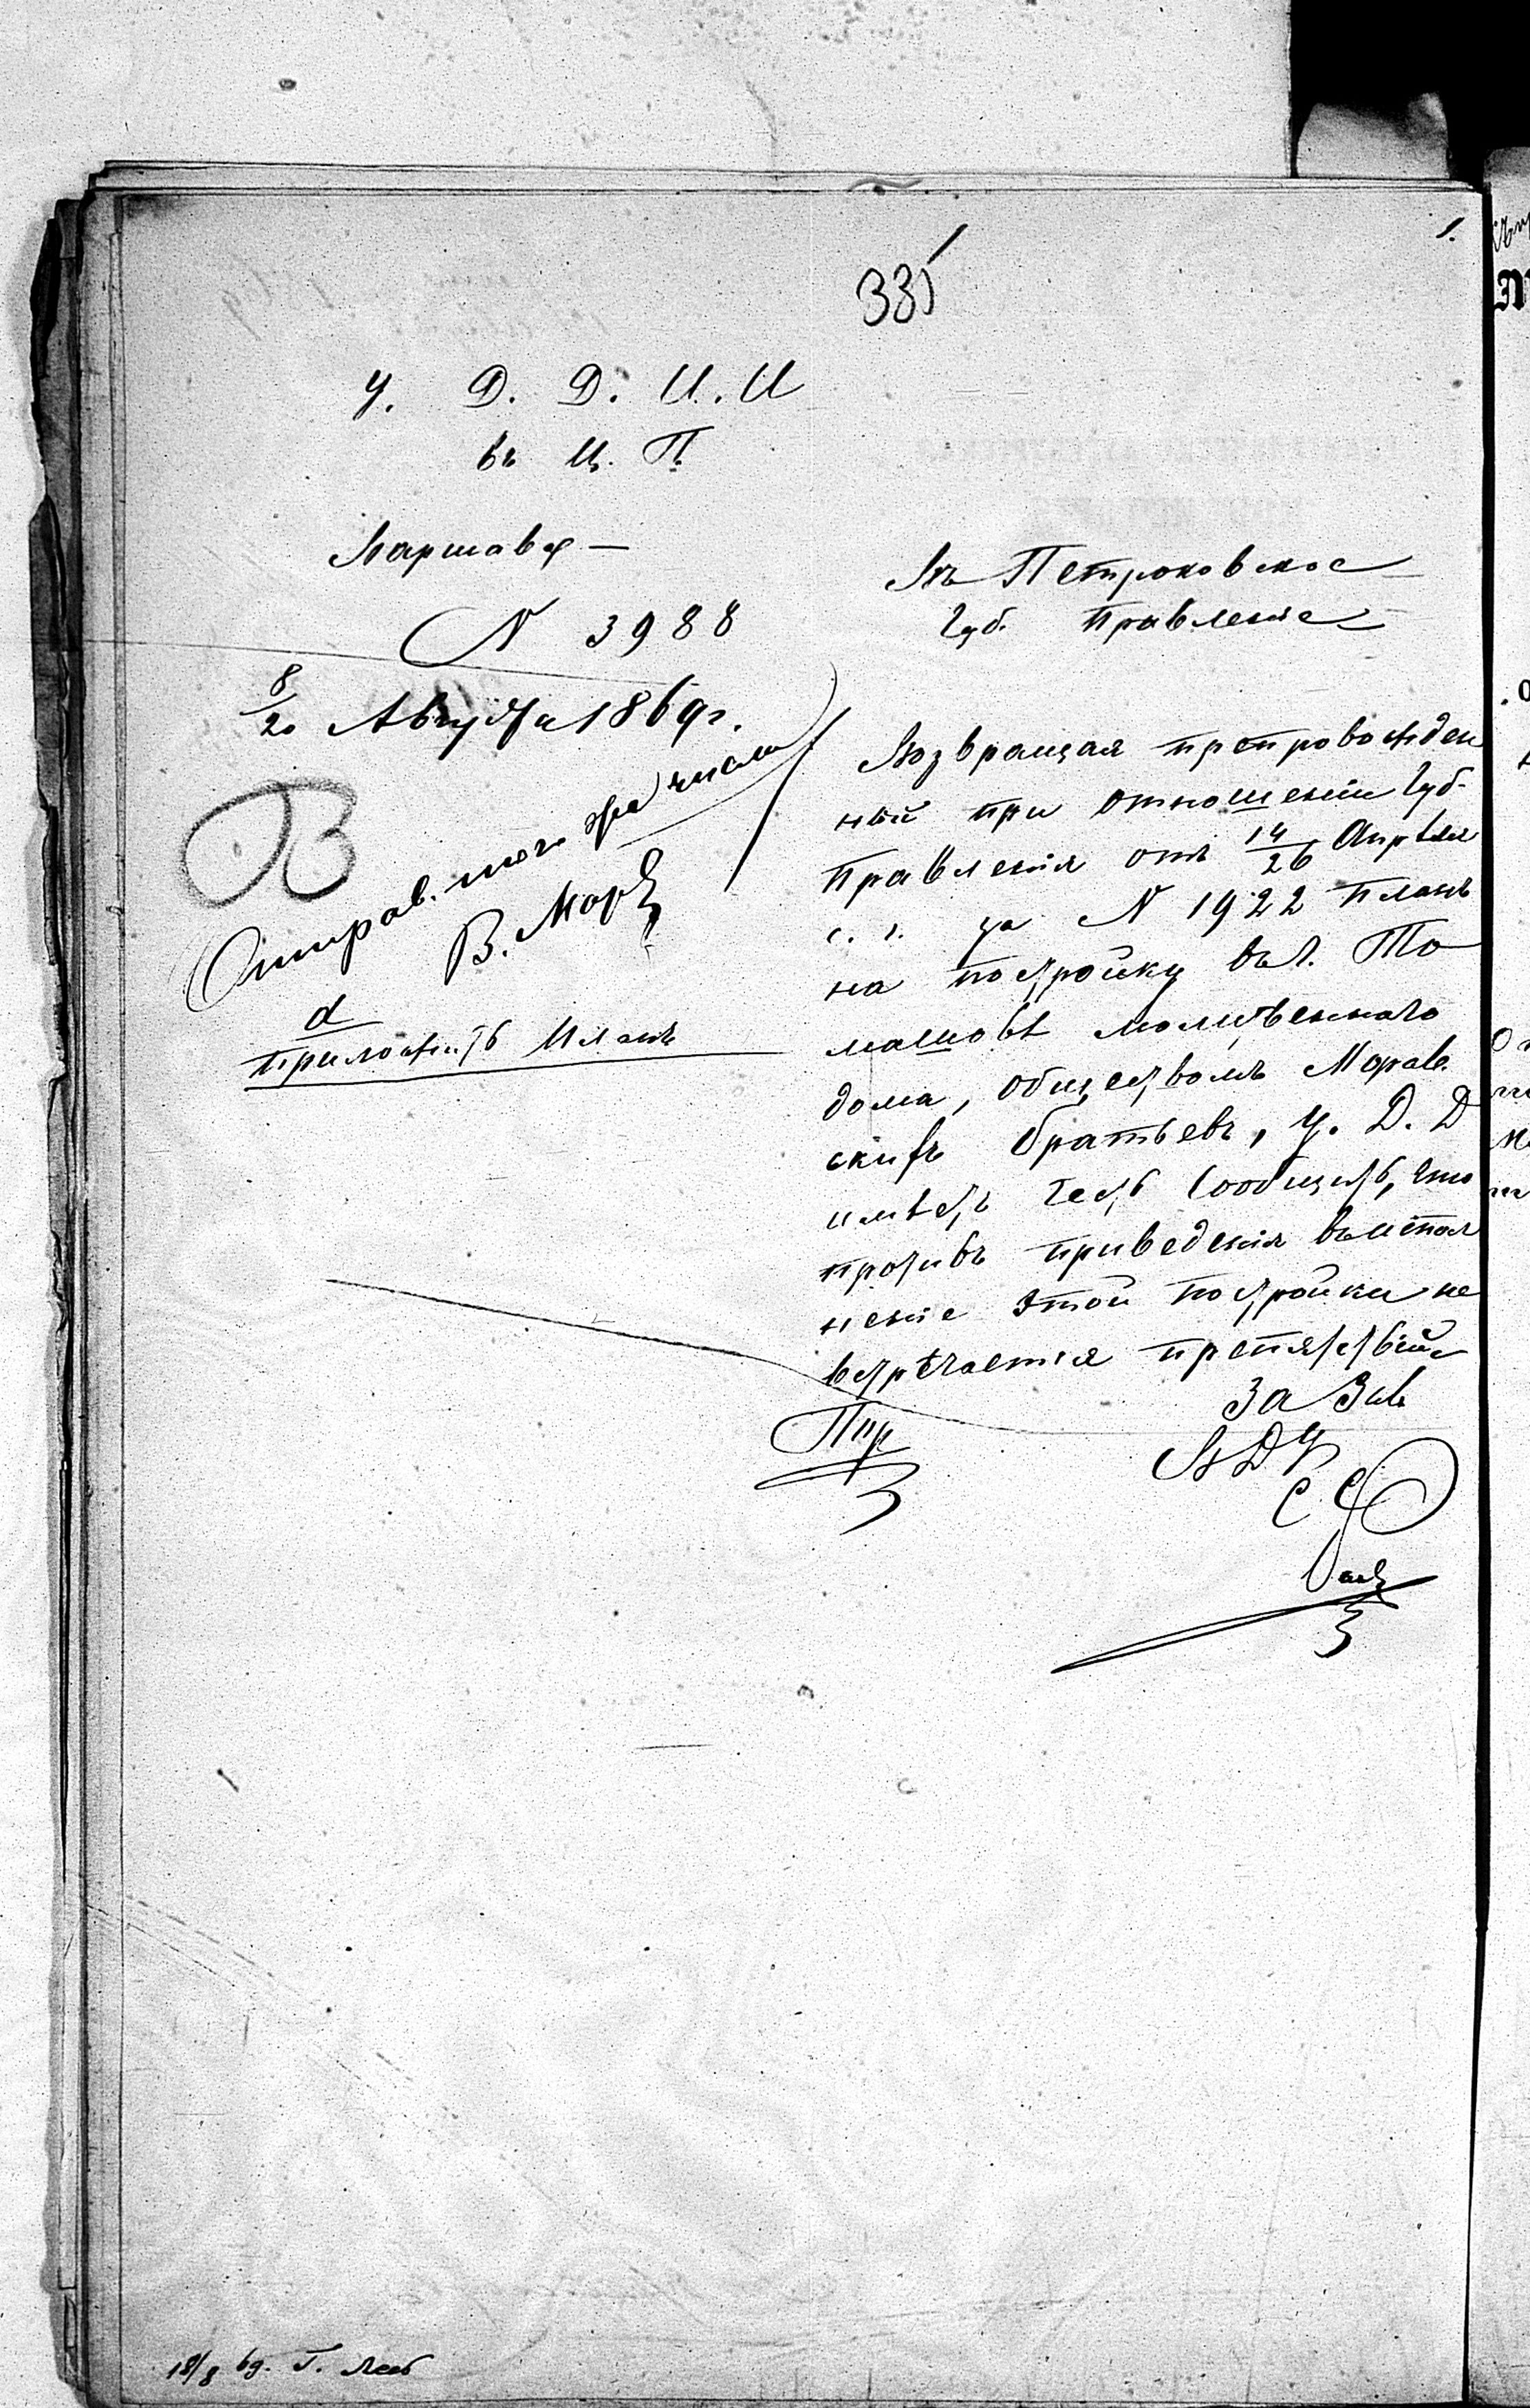 1.
335
У. Д. Д. И. И
въ Ц. П.
Варшава
N 3988
8/20 Августа 1869 г.
Отправ. того же числа
В. Мор
а
приложить планъ
Въ Петроковское
Губ. Правленіе
Возвращая препровожден
ный при отношеніи Губ.
Правленія отъ 14/26 Апрѣля
с. г. за N 1922 планъ
на постройку въ г. То
машовѣ молитвеннаго
дома, обществомъ Морав.
скихъ братьевъ, У. Д. Д
имѣетъ честь сообщить, что
противъ приведенія въ испол
неніе этой постройки не
встрѣчается препятствій
За Зав
Пир
В Д У
С. С.
18/8 69. Г.